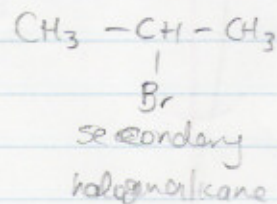 CH3 - CH - CH3
|
Br
secondary
halogenoalkane